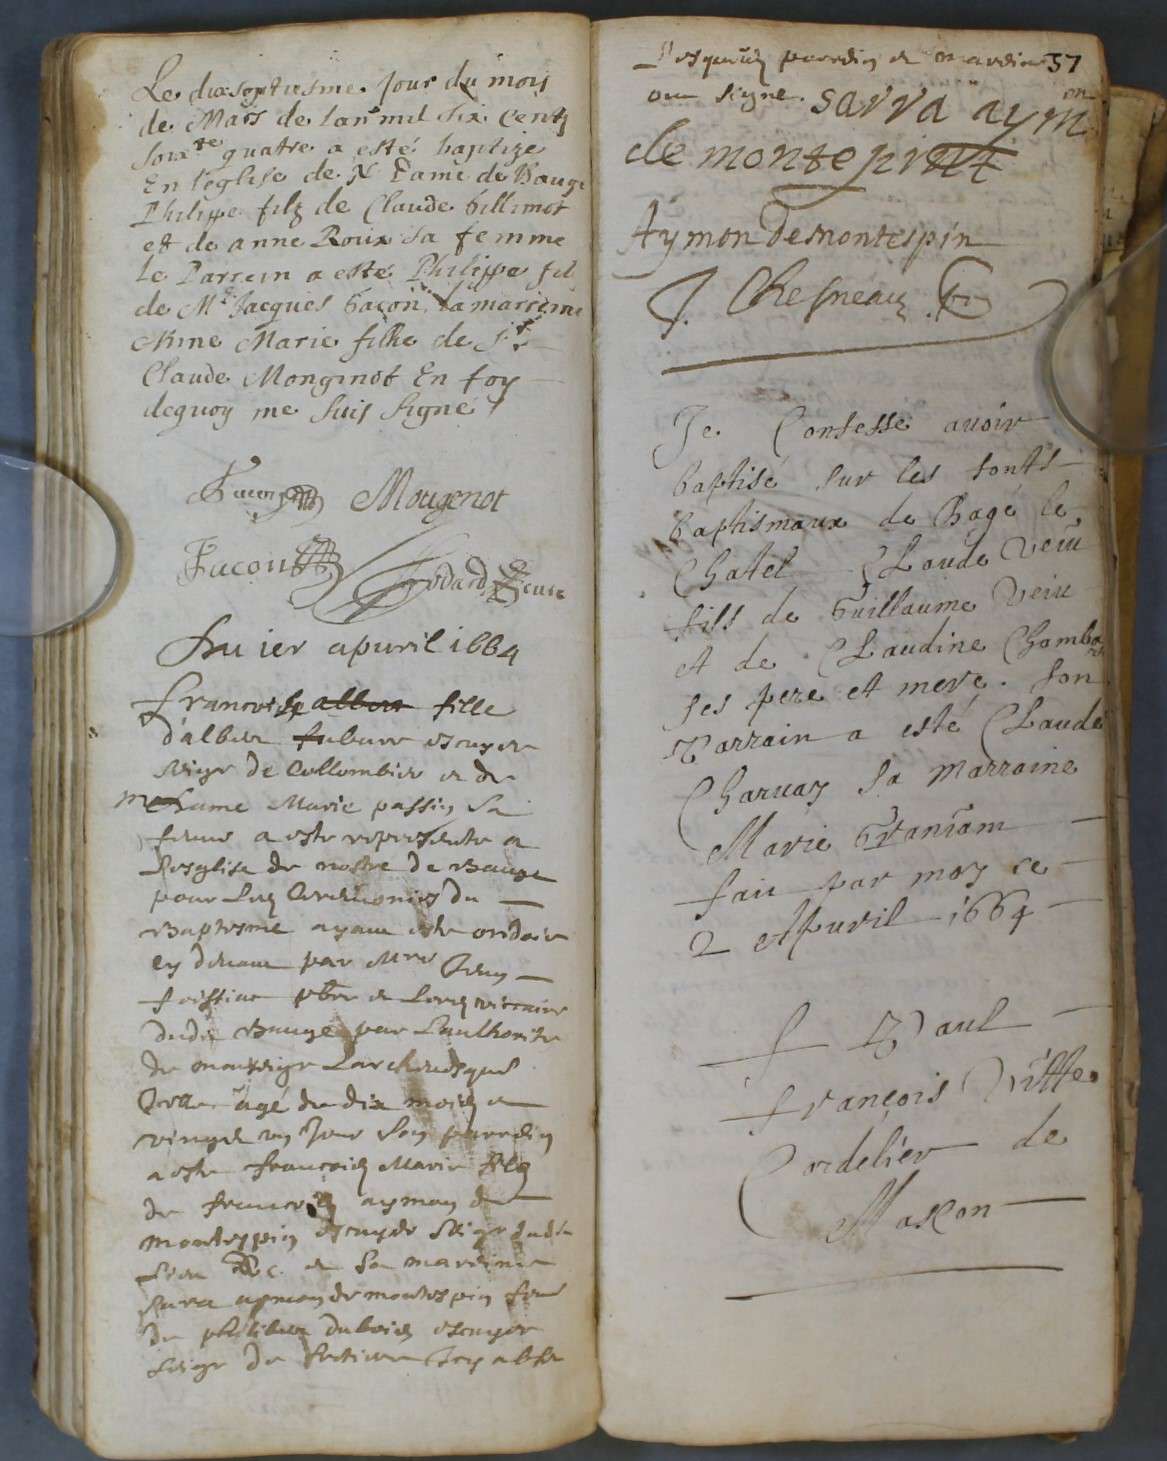 Le dixseptiesme Jour du mois
de Mars de lan mil six centz
soixte quatre a esté baptize
En leglise de N Dame de Bauge
Philippe filz de Claude Gillimot
et de anne Roux sa femme
Le Parrein a esté Philippe fil
de Mr Jacques Gacon, la marreine
Anne Marie fille de Sr
Claude Monginot En foy
dequoy me suis signé
Mougenot
Facon
Godard curé
Du ier apuril 1664
francoise albert fille
d'albert escuyer
seigr de Collombier et de
madame Marie passin sa
femme a este representee a
lesglise de nostre De Bauge
pour les Ceremonies du
Baptesme ayant este ondoiee
cy devant par Mre Jean
pbre et vicaire
dudit Bauge par Lauthorite
de monseigr Larchevesque
âgé de dix mois et
vingt un Jour son parrein
a este francois Marie filz
de francois aymon de
montespin escuyer seigr dudit
Lieu &c. et sa marreine
Sara aymon de montespin femme
de philibert dubois escuyer
seigr de
Lesquelz parrein et marreine 57
ont signe. sarra aymon
de montepin
Aymon De montespin
J. Chesneau
Je Confesse avoir
baptisé sur les fonts
baptismaux de Bagé le
Chatel Claude Veiu
fils de Guillaume Veiu
et de Claudine Chambard
ses pere et mere. son
Parrain a esté Claude
Charvay sa marraine
Marie
fait par moy ce
2 Apuril 1664
f Paul
françois Vitte
Cordelier de
Mascon